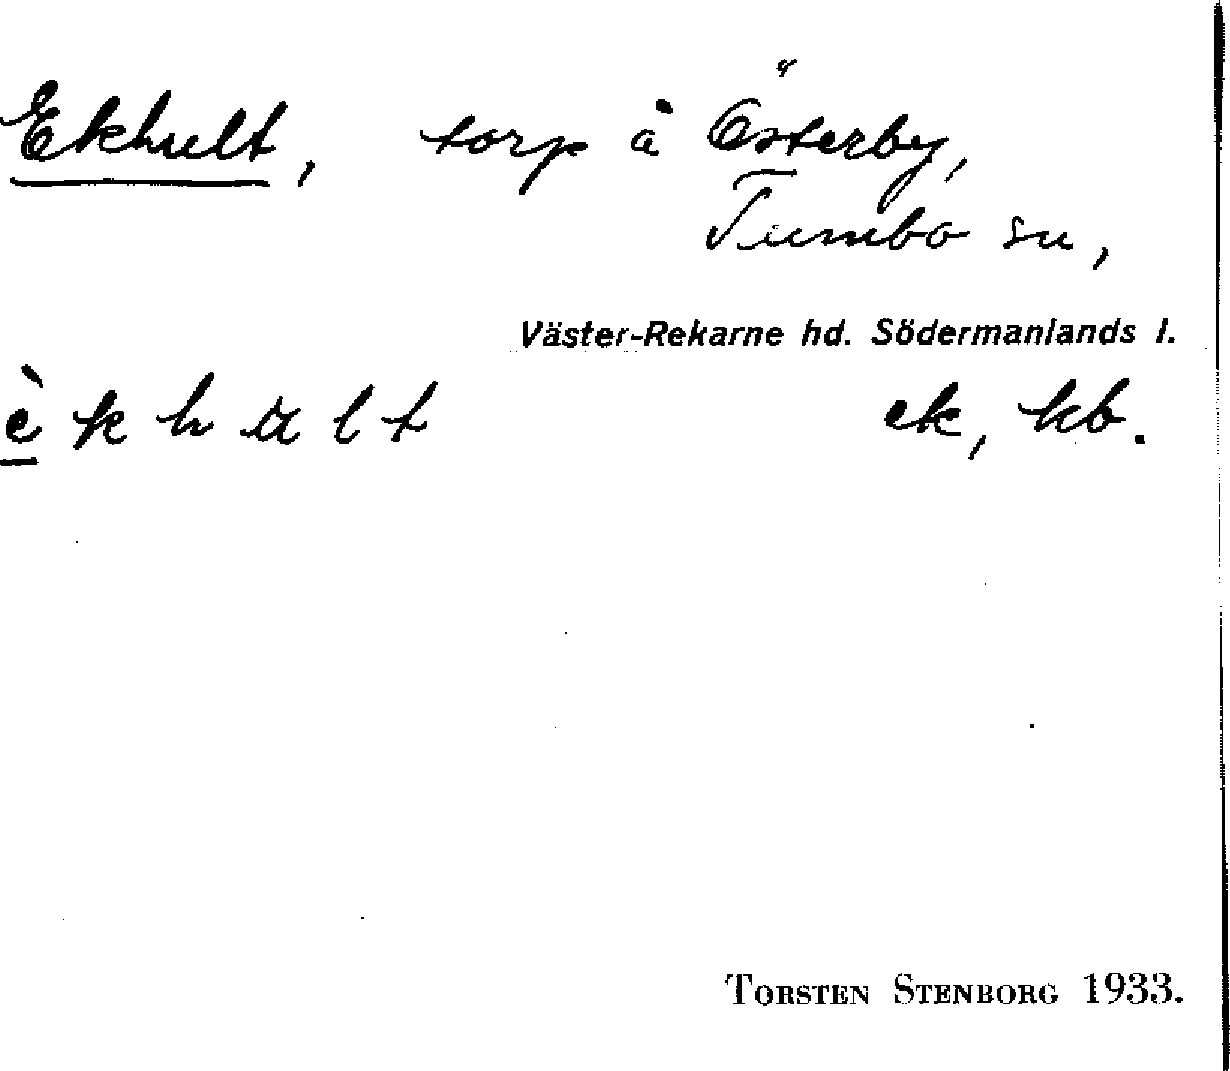 Ekhult, torp å Österby,
Tumbo sn,
Väster-Rekarne hd. Södermanlands l.
è k h u l t ek, kb.
TORSTEN STENBORG 1933.